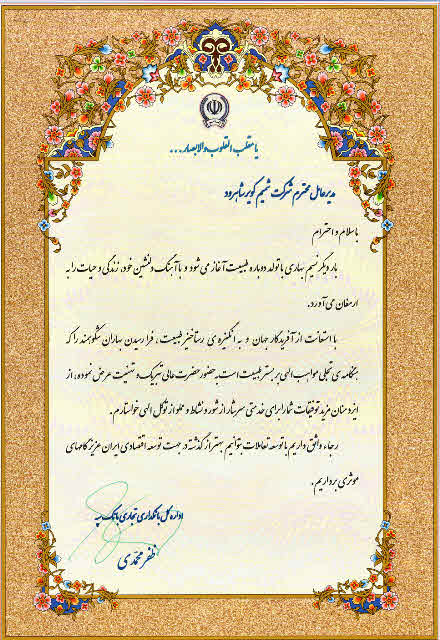 یا مقلب القلوب والابصار ...
مدیرعامل محترم شرکت شمیم کویر شاهرود
با سلام و احترام
بار دیگر نسیم بهاری با تولد دوباره طبیعت آغاز می شود و با آهنگ دلنشین خود، زندگی و حیات را به
ارمغان می آورد.
با استعانت از آفریدگار جهان و به انگیزه ی رستاخیز طبیعت ، فرا رسیدن بهاران شکوهمند را که
هنگامه ی تجلی مواهب الهی بر بستر طبیعت است به حضور حضرت عالی تبریک و تهنیت عرض نموده، از
ایزد منان مزید توفیقات شما را برای خدمتی سرشار از شور و نشاط و مملو از توکل الهی خواستارم.
رجاء واثق داریم با توسعه تعاملات بتوانیم بهتر از گذشته در جهت توسعه اقتصادی ایران عزیز گامهای
موثری برداریم.
اداره کل بانکداری تجاری بانک سپه
ظفر محمدی